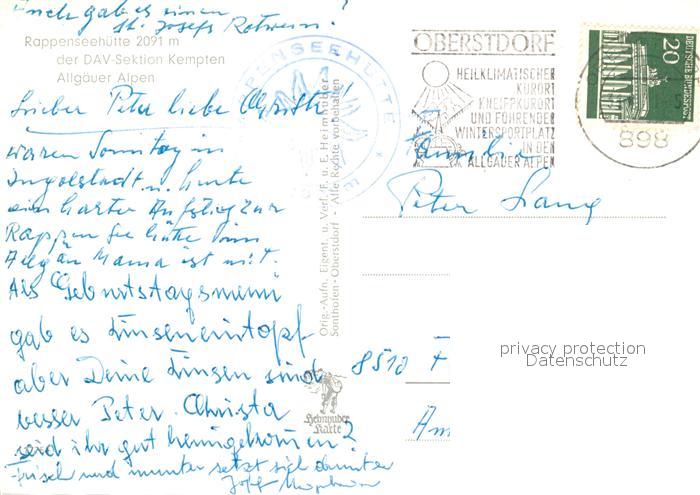 Auch gab es einen
St. Josefs Rotwein!
Rappenseehütte 2091 m
der DAV-Sektion Kempten
Allgäuer Alpen
Lieber Peter liebe Christa!
waren Sonntag in
Ingolstadt u. heute
ein harter Aufstieg zur
Rappen See hütte im
Allgäu Mama ist mit.
Als Geburtstagsmenü
gab es Linseneintopf
aber Deine Linsen sind
besser Peter. Christa
seid ihr gut heimgekommen?
Frisch und munter setzt sich
Orig.-Aufn. Eigent. u. Verl. F. u. E. Heimhuber
Sonthofen - Oberstdorf - Alle Rechte vorbehalten
Heimhuber
Karte
PENSEEHÜTTE
OBERSTDORF
HEILKLIMATISCHER
KURORT
KNEIPPKURORT
UND FÜHRENDER
WINTERSPORTPLATZ
IN DEN
ALLGÄUER ALPEN
20
DEUTSCHE BUNDESPOST
898
Familie
Peter Lang
8510 F
Am
privacy protection
Datenschutz